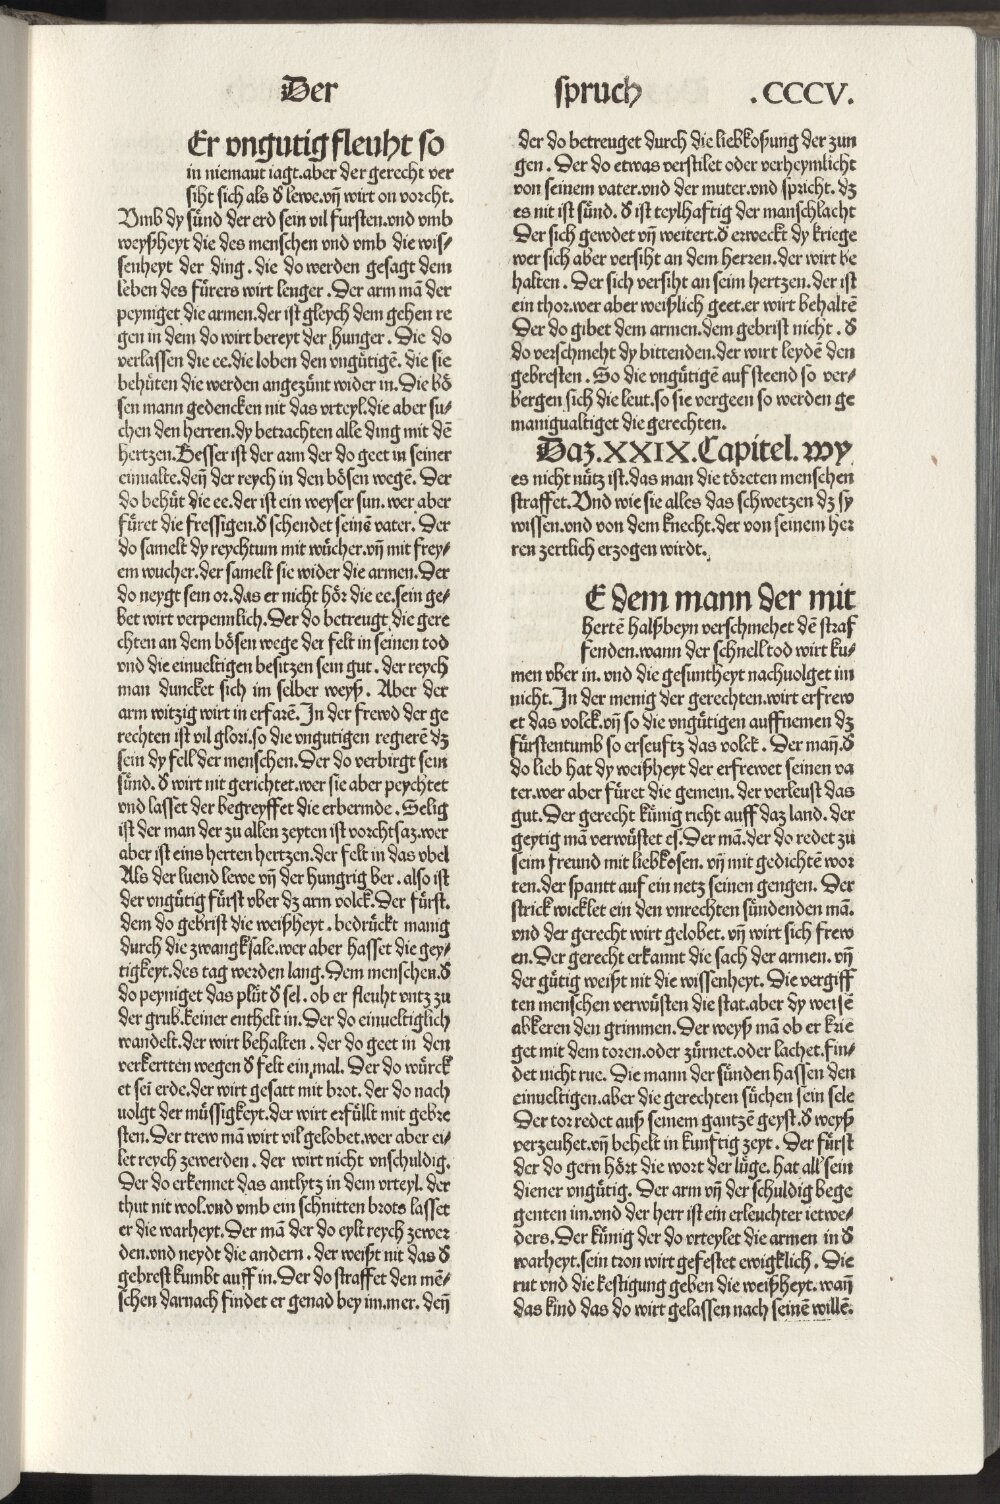 Der spruch .CCCV.
Er vngutig fleuht so
in niemant iagt.aber der gerecht ver
siht sich als d̕ lewe.vñ wirt on vorcht.
Vmb dy sünd der erd sein vil fursten.vnd vmb
weyßheyt die des menschen vnd vmb die wis/
senheyt der ding . die do werden gesagt dem
leben des fürers wirt lenger . Der arm mā der
peyniget die armen.der ist gleych dem gehen re
gen in dem do wirt bereyt der hunger . Die do
verlassen die ee.die loben den vngütigē. die sie
behüten die werden angezünt wider in.Die bö
sen mann gedencken nit das vrteyl.die aber su/
chen den herren.dy betrachten alle ding mit dē
hertzen.Besser ist der arm der do geet in seiner
einualte.deñ der reych in den bösen wegē. Der
do behüt die ee.der ist ein weyser sun. wer aber
füret die fressigen.d̕ schendet seinē vater. Der
do samelt dy reychtum mit wücher.vñ mit frey/
em wucher.der samelt sie wider die armen.Der
do neygt sein or.das er nicht hör die ee.sein ge/
bet wirt verpennlich.Der do betreugt die gere
chten an dem bösen wege der felt in seinen tod
vnd die einueltigen besitzen sein gut . der reych
man duncket sich im selber weyß . Aber der
arm witzig wirt in erfarē.In der frewd der ge
rechten ist vil glori.so die vngutigen regierē dz
sein dy fell der menschen.Der do verbirgt sein
sünd. d̕ wirt nit gerichtet.wer sie aber peychtet
vnd lasset der begreyffet die erbermde . Selig
ist der man der zu allen zeyten ist vorchtsaz.wer
aber ist eins herten hertzen.der felt in das vbel
Als der luend lewe vñ der hungrig ber . also ist
der vngütig fürst vber dz arm volck.Der fürst.
dem do gebrist die weißheyt . bedrückt manig
durch die zwangksale.wer aber hasset die gey/
tigkeyt.des tag werden lang. Dem menschen.d̕
do peyniget das plüt d̕ sel . ob er fleuht vntz zu
der grub.keiner enthelt in.Der do einueltiglich
wandelt.der wirt behalten . der do geet in den
verkertten wegen d̕ felt ein mal. Der do würck
et sei erde.der wirt gesatt mit brot. der do nach
uolgt der müssigkeyt.der wirt erfüllt mit gebre
sten.Der trew mā wirt vil gelobet.wer aber ei/
let reych zewerden . der wirt nicht vnschuldig.
Der do erkennet das antlytz in dem vrteyl. der
thut nit wol.vnd vmb ein schnitten brots lasset
er die warheyt.Der mā der do eylt reych zewer
den.vnd neydt die andern . der weißt nit das d̕
gebrest kumbt auff in.Der do straffet den mē/
schen darnach findet er genad bey im.mer. deñ
der do betreuget durch die liebkoßung der zun
gen . Der do etwas verstilet oder verheymlicht
von seinem vater.vnd der muter.vnd spricht. dz
es nit ist sünd. d̕ ist teylhaftig der manschlacht
Der sich gewdet vñ weitert.d̕ erweckt dy kriege
wer sich aber versiht an dem herren.der wirt be
halten . Der sich versiht an seim hertzen.der ist
ein thor.wer aber weißlich geet.er wirt behaltē
Der do gibet dem armen.dem gebrist nicht . d̕
do verschmeht dy bittenden.der wirt leydē den
gebresten . So die vngütigē auf steend so ver/
bergen sich die leut.so sie vergeen so werden ge
manigualtiget die gerechten.
Daz.XXIX.Capitel.wy
es nicht nütz ist.das man die töreten menschen
straffet.Vnd wie sie alles das schwetzen dz sy
wissen.vnd von dem knecht.der von seinem her
ren zertlich erzogen wirdt.
E dem mann der mit
hertē halßbeyn verschmehet dē straf
fenden.wann der schnell tod wirt ku/
men vber in. vnd die gesuntheyt nachuolget im
nicht. In der menig der gerechten.wirt erfrew
et das volck.vñ so die vngütigen auffnemen dz
fürstentumb so erseuftz das volck . Der mañ.d̕
do lieb hat dy weißheyt der erfrewet seinen va
ter.wer aber füret die gemein. der verleust das
gut.Der gerecht künig richt auff daz land. der
geytig mā verwüstet es.Der mā.der do redet zu
seim freund mit liebkosen. vñ mit gedichtē wor
ten.der spantt auf ein netz seinen gengen. Der
strick wicklet ein den vnrechten sündenden mā.
vnd der gerecht wirt gelobet. vñ wirt sich frew
en.Der gerecht erkannt die sach der armen. vñ
der gütig weißt nit die wissenheyt. Die vergiff
ten menschen verwüsten die stat.aber dy weisē
abkeren den grimmen.Der weyß mā ob er krie
get mit dem toren.oder zürnet.oder lachet.fin/
det nicht rue. Die mann der sünden hassen den
einueltigen.aber die gerechten süchen sein sele
Der tor redet auß seinem gantzē geyst.d̕ weyß
verzeuhet.vñ behelt in kunftig zeyt . Der fürst
der do gern hört die wort der lüge. hat all sein
diener vngütig. Der arm vñ der schuldig bege
genten im.vnd der herr ist ein erleuchter ietwe/
ders.Der künig der do vrteylet die armen in d̕
warheyt.sein tron wirt gefestet ewigklich . Die
rut vnd die kestigung geben die weißheyt. wañ
das kind das do wirt gelassen nach seinē willē.